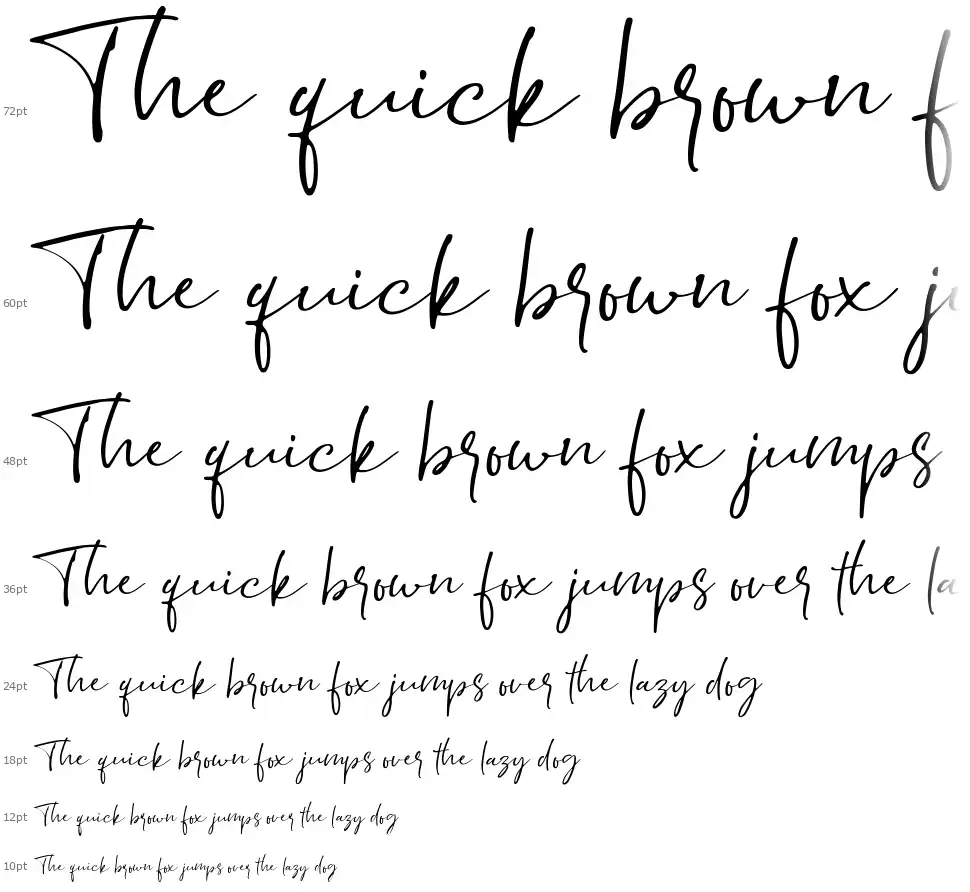 72pt The quick brown f
60pt The quick brown fox ju
48pt The quick brown fox jumps
36pt The quick brown fox jumps over the la
24pt The quick brown fox jumps over the lazy dog
18pt The quick brown fox jumps over the lazy dog
12pt The quick brown fox jumps over the lazy dog
10pt The quick brown fox jumps over the lazy dog